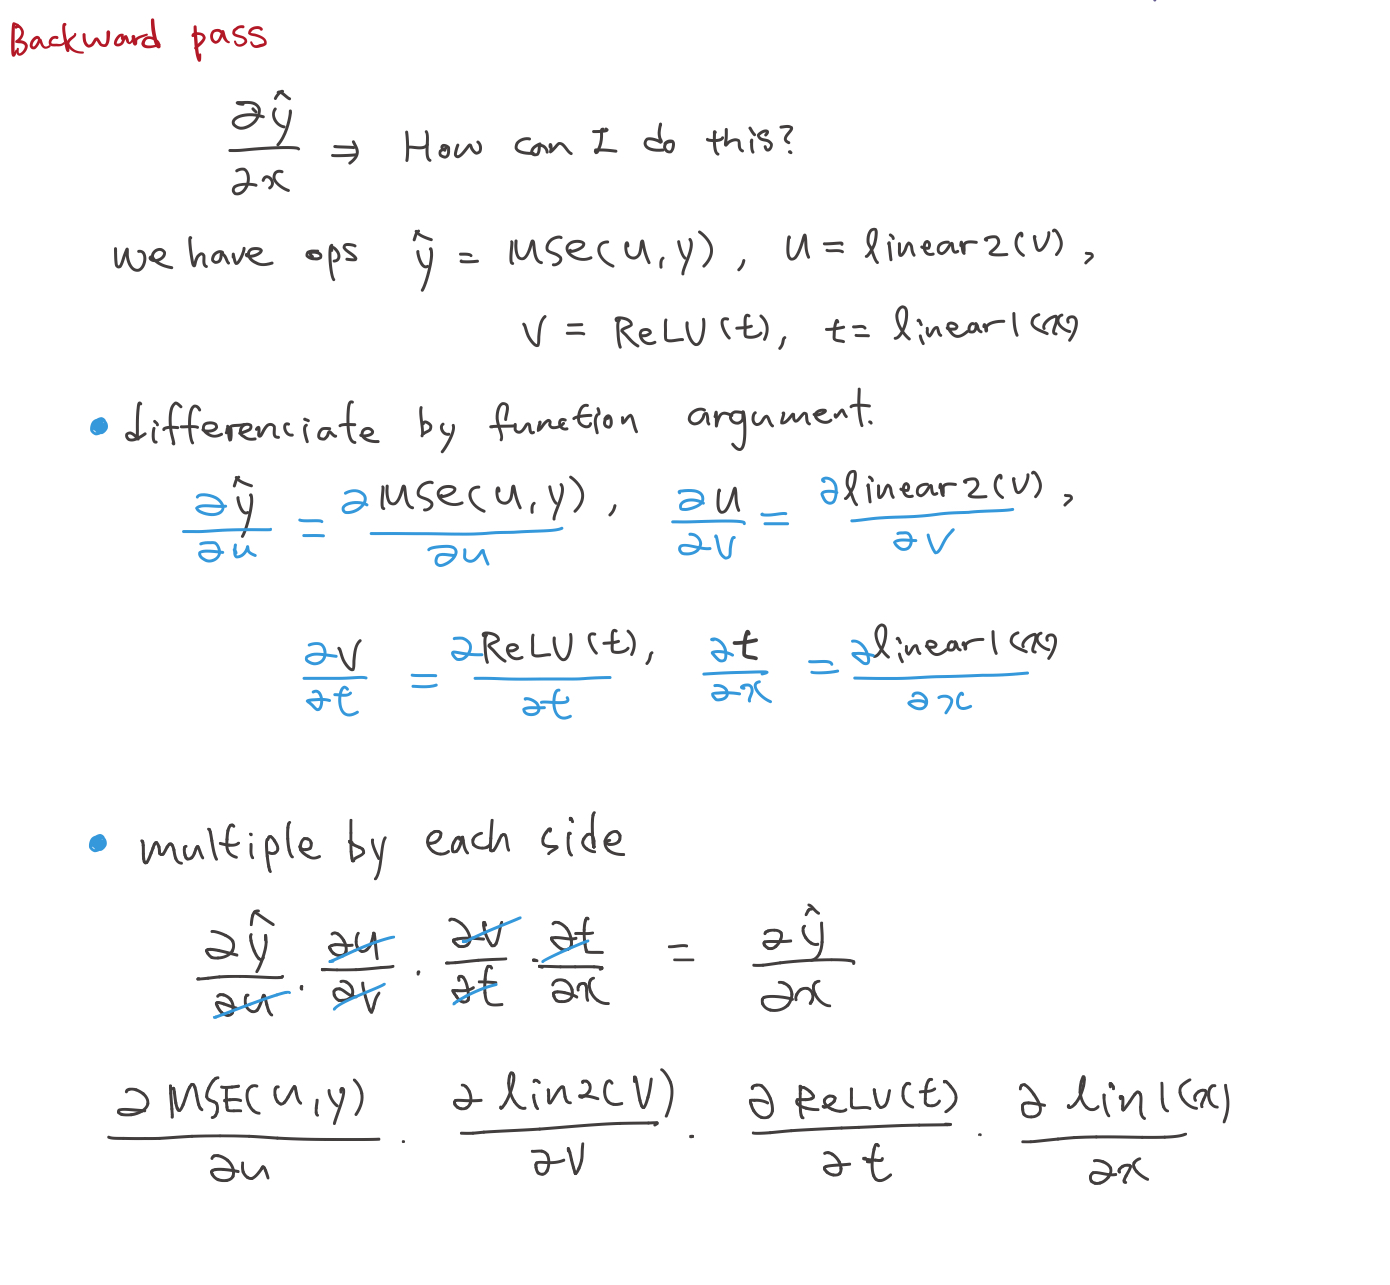 Backward pass
∂ŷ/∂x ⇒ How can I do this?
we have ops ŷ = MSE(u, y), u = linear2(v),
v = ReLU(t), t = linear1(x)
• differenciate by function argument.
∂ŷ/∂u = ∂MSE(u, y)/∂u, ∂u/∂v = ∂linear2(v)/∂v,
∂v/∂t = ∂ReLU(t)/∂t, ∂t/∂x = ∂linear1(x)/∂x
• multiple by each side
∂ŷ/∂u · ∂u/∂v · ∂v/∂t · ∂t/∂x = ∂ŷ/∂x
∂MSE(u, y)/∂u · ∂lin2(v)/∂v · ∂ReLU(t)/∂t · ∂lin1(x)/∂x